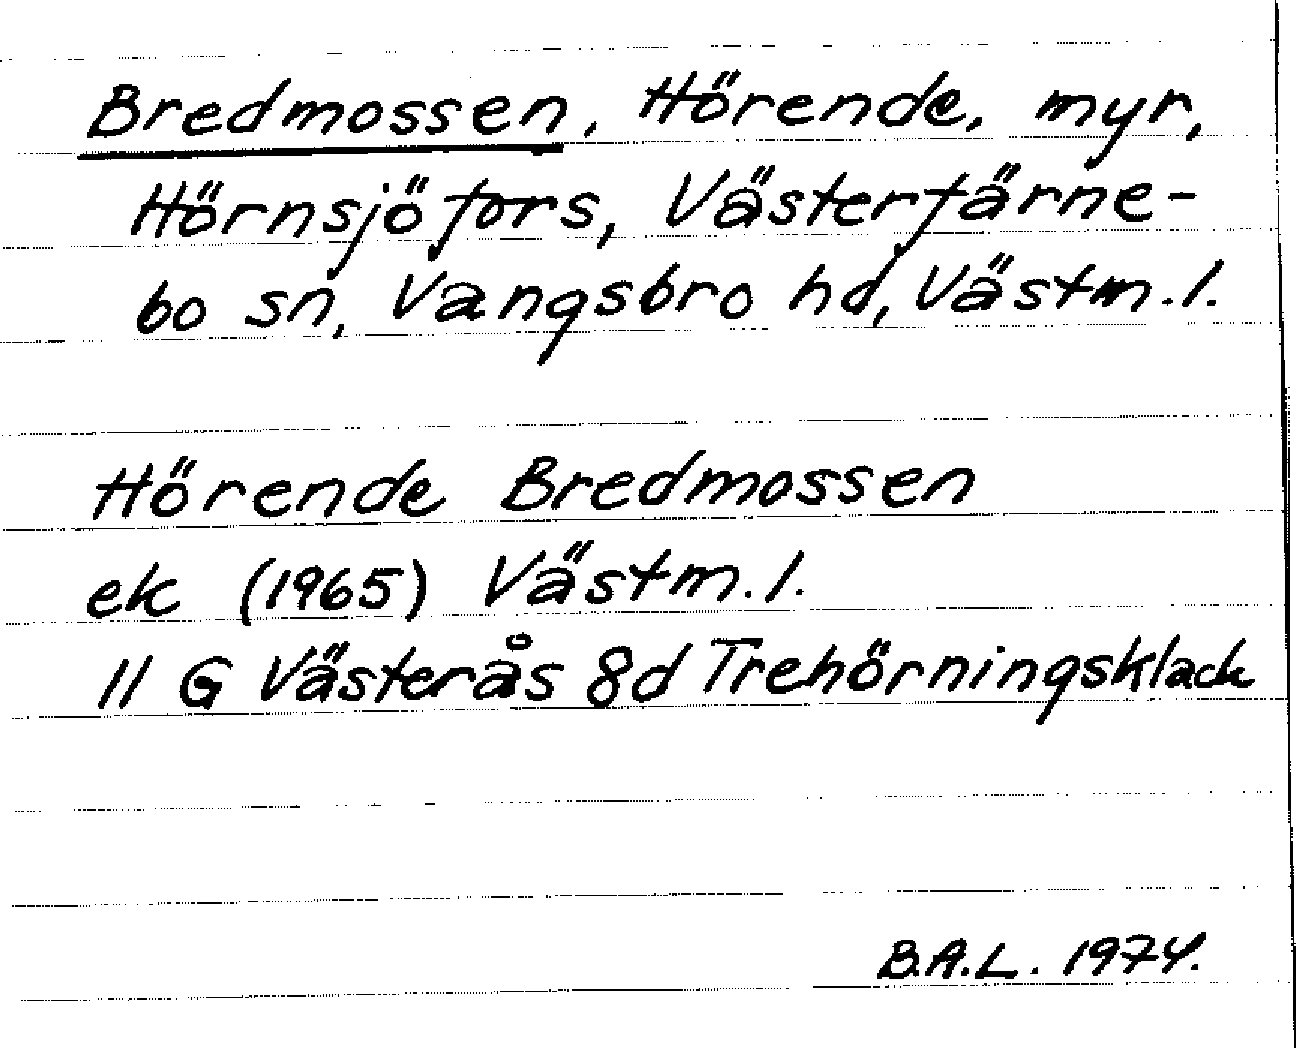 Bredmossen, Hörende, myr,
Hörnsjöfors, Västerfärne-
bo sn, Vangsbro hd, Västm.l.
Hörende Bredmossen
ek (1965) Västm.l.
11 G Västerås 8d Trehörningsklack
B.A.L. 1974.